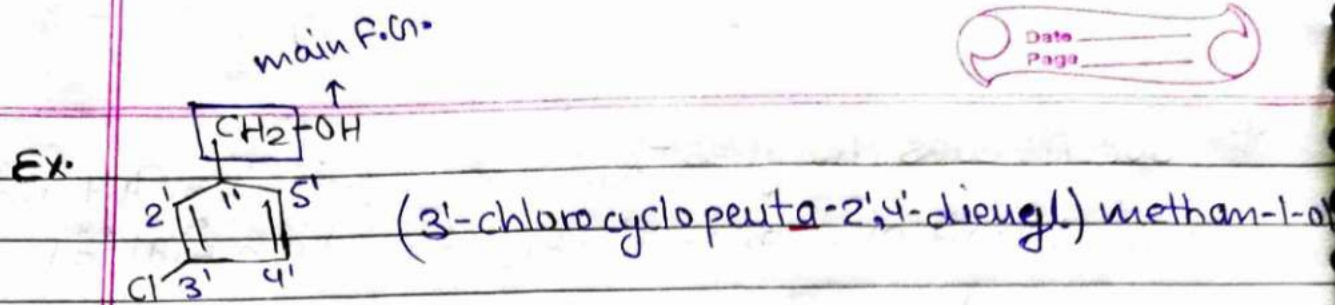 main F.G.
Date
Page
CH2-OH
Ex.
1'
5'
2'
(3'-chloro cyclopenta-2',4'-dienyl) methan-1-ol
Cl
3'
4'